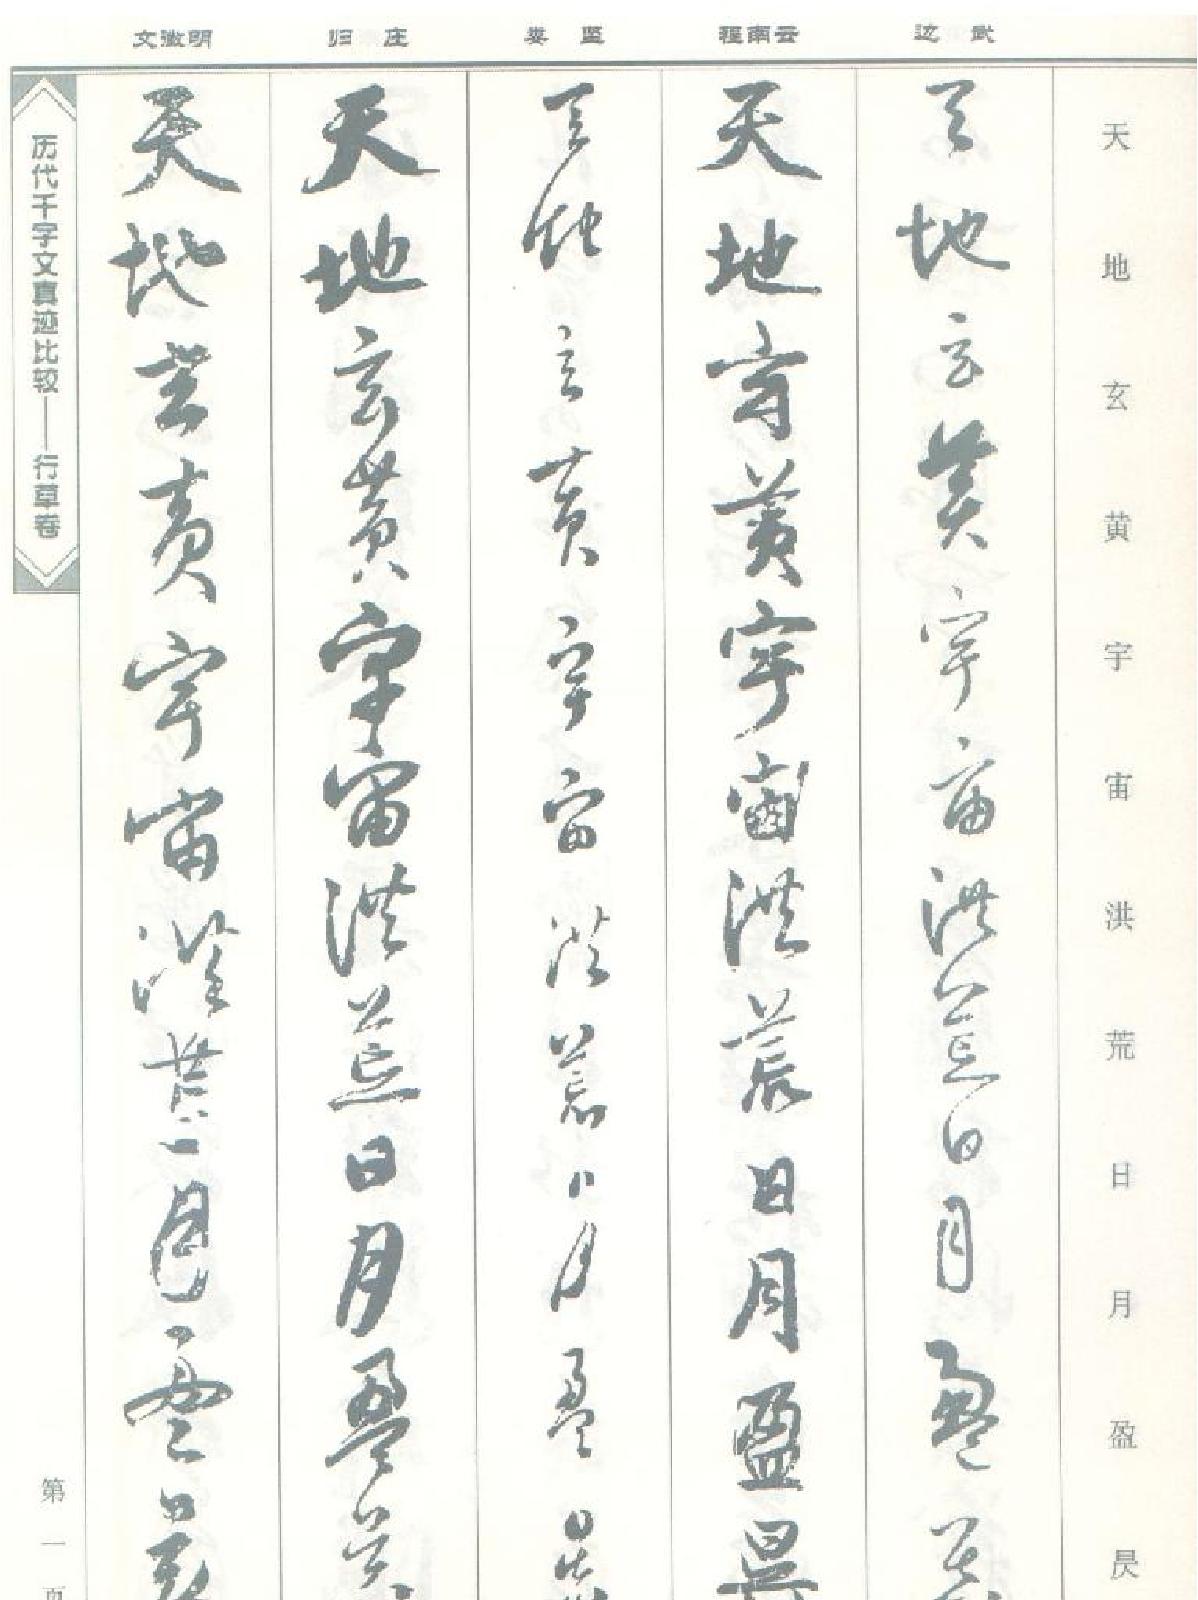 天地玄黄宇宙洪荒日月盈昃
边武
天地玄黄宇宙洪荒日月盈昃
程南云
天地玄黄宇宙洪荒日月盈昃
娄坚
天地玄黄宇宙洪荒日月盈昃
归庄
天地玄黄宇宙洪荒日月盈昃
文徵明
天地玄黄宇宙洪荒日月盈昃
历代千字文真迹比较——行草卷
第一页